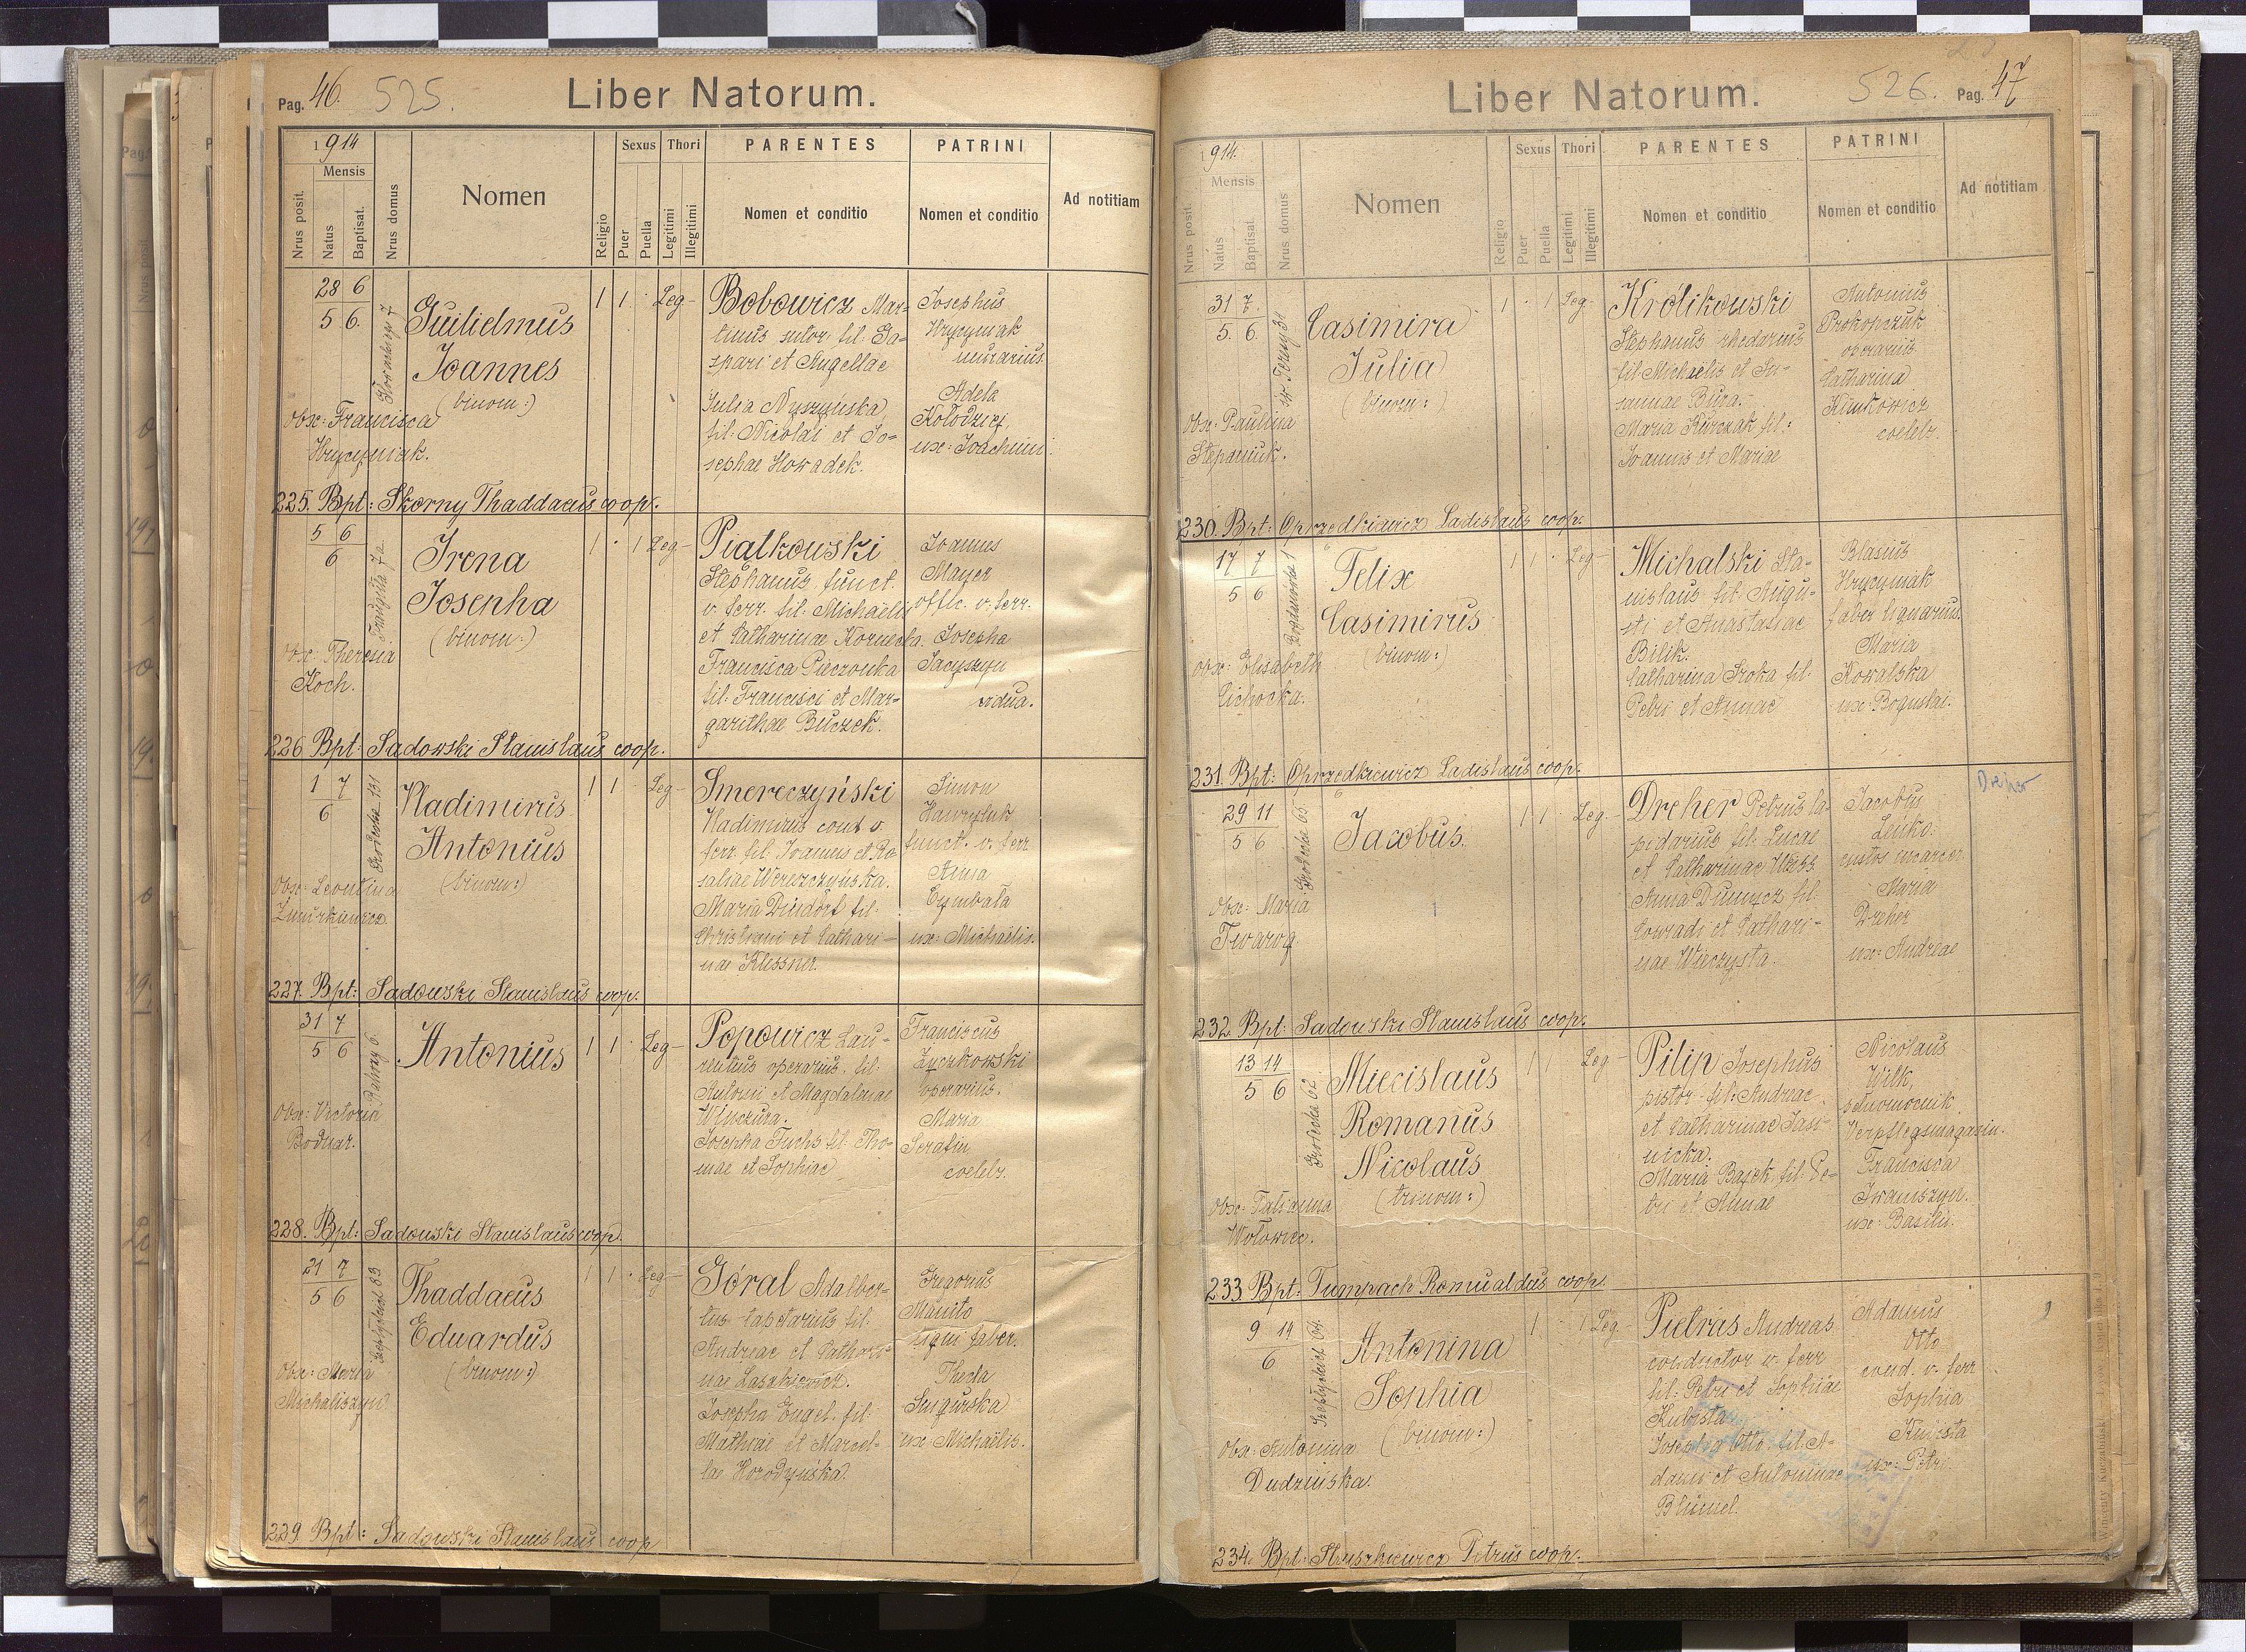 Pag. 46. 525. Liber Natorum.
1914
Mensis
Nrus posit.
Natus
Baptisat.
Nrus domus
Nomen
Religio
Sexus
Puer
Puella
Thori
Legitimi
Illegitimi
PARENTES
Nomen et conditio
PATRINI
Nomen et conditio
Ad notitiam
28 6
5 6.
Guilielmus
Joannes
(binom:)
Obx: Francisca
Hrycyniak.
1 1 · Leg-
Bobowicz Mar-
tinus sutor, fil. Ga-
spari et Angellae
Julia Nyszyńska,
fil: Nicolai et Jo-
sephae Howadek.
Josephus
Hrycyniak
murarius.
Adela
Kołodziej,
ux: Joachimi.
225. Bpt: Skorny Thaddaeus coop.
5 6
6
Irena
Josepha
(binom:)
Obx: Theresia
Koch.
1 · 1 Leg-
Piatkowski
Stephanus funct.
v. ferr. fil. Michaelis
et Catharinae
Francisca Pieczonka
fil: Francisci et Mar-
garithae Buczek.
Joannes
Mayer
offic. v. ferr.
Josepha
Jacyszyn
vidua.
226 Bpt: Sadowski Stanislaus coop.
1 7
6
Grodecka 131
Vladimirus
Antonius
(binom:)
Obx: Leontina
1 1 · Leg-
Smereczyński
Vladimirus cond v.
ferr. fil. Joannis et Ro-
saliae Wereszczyńska.
Maria Dindorf fil.
Christiani et Cathari-
nae Klessner.
Simon
Hawryluk
funct. v. ferr
Anna
Cymbala
ux: Michaelis.
227. Bpt: Sadowski Stanislaus coop.
31 7
5 6
Antonius
Obx: Victoria
Bodnar.
1 1 · Leg-
Popowicz Lau-
rentius operarius. fil.
Antonii et Magdalenae
Winczura.
Josepha Fuchs fil. Tho-
mae et Sophiae
Franciscus
Zyczkowski
operarius.
Maria
Serafin
coelebs.
228. Bpt: Sadowski Stanislaus coop.
21 7
5 6
Szeptyckich 83
Thaddaeus
Eduardus
(binom:)
Obx: Maria
Michaliszyn
1 1 · Leg-
Góral Adalber-
tus tapetarius fil.
Andreae et Cathari-
nae Laszkiewicz.
Josepha Engel. fil.
Mathiae et Marcel-
lae Horodyńska.
Gregorius
Manito
ligni faber.
Thecla
ux Michaelis.
229. Bpt: Sadowski Stanislaus coop
Liber Natorum. 526. Pag. 47
1914.
Mensis
Nrus posit.
Natus
Baptisat.
Nrus domus
Nomen
Religio
Sexus
Puer
Puella
Thori
Legitimi
Illegitimi
PARENTES
Nomen et conditio
PATRINI
Nomen et conditio
Ad notitiam
31 7.
5. 6.
św Teresy 31
Casimira
Julia
(binom:)
Obx: Paulina
Stepaniuk.
1 · 1 Leg-
Królikowski
Stephanus rhedarius
fil. Michaelis et Su-
sannae Bura.-
Maria Kurczak fil:
Joannis et Mariae
Antonius
Prokopczuk
operarius.
Catharina
Klimkowicz
coelebs.
230. Bpt: Oprzedkiewicz Ladislaus coop.
17 7
5 6
Bogdanówka 1
Felix
Casimirus
(binom:)
Obx: Elisabeth
Cichocka.
1 1 · Leg-
Michalski Sta-
nislaus fil. Augu-
sti et Anastasiae
Bilik.
Catharina Sroka fil.
Petri et Annae
Blasius
Hrycyniak
faber lignarius.
Maria
Kowalska
ux: Boguslai.
231. Bpt: Oprzedkiewicz Ladislaus coop.
29 11
5 6
Grodecka 65
Jacobus.
Obx: Maria
Twarog.
1 1 · Leg.-
Dreher Petrus la-
pidarius fil: Lucae
et Catharinae Weiss
Anna Dumycz fil.
Conradi et Cathari-
nae Wieczysta.
Jacobus
Leuko.
custos incarcer.
Maria
Dreher
ux: Andreae
Dreher
232. Bpt: Sadowski Stanislaus coop.
13 14
5 6
Grodecka 62
Miecislaus
Romanus
Nicolaus
(trinom:)
Obx: Tatianna
Wołowiec.
1 1 · Leg-
Pilip Josephus
pistor fil: Andreae
et Catharinae Jasi-
nicka.
Maria Bajek. fil. Pe-
tri et Annae
Nicolaus
Wilk,
pełnomocnik
Verpflegsmagazin.
Francisca
Iwaniszyn.
ux: Basilii.
233 Bpt: Tumpach Romualdus coop.
9 14
6
Szeptyckich 64.
Antonina
Sophia
(binom:)
Obx: Antonina
Dudzinska.
1 · 1 Leg-
Putras Andreas
conductor v. ferr
fil: Petri et Sophiae
Kubista
Josepha Otto. fil. A-
dami et Antoninae
Blümel.
Adamus
Otto
cond. v. ferr
Sophia
ux: Petri
234. Bpt: Stuszkiewicz Petrus coop.